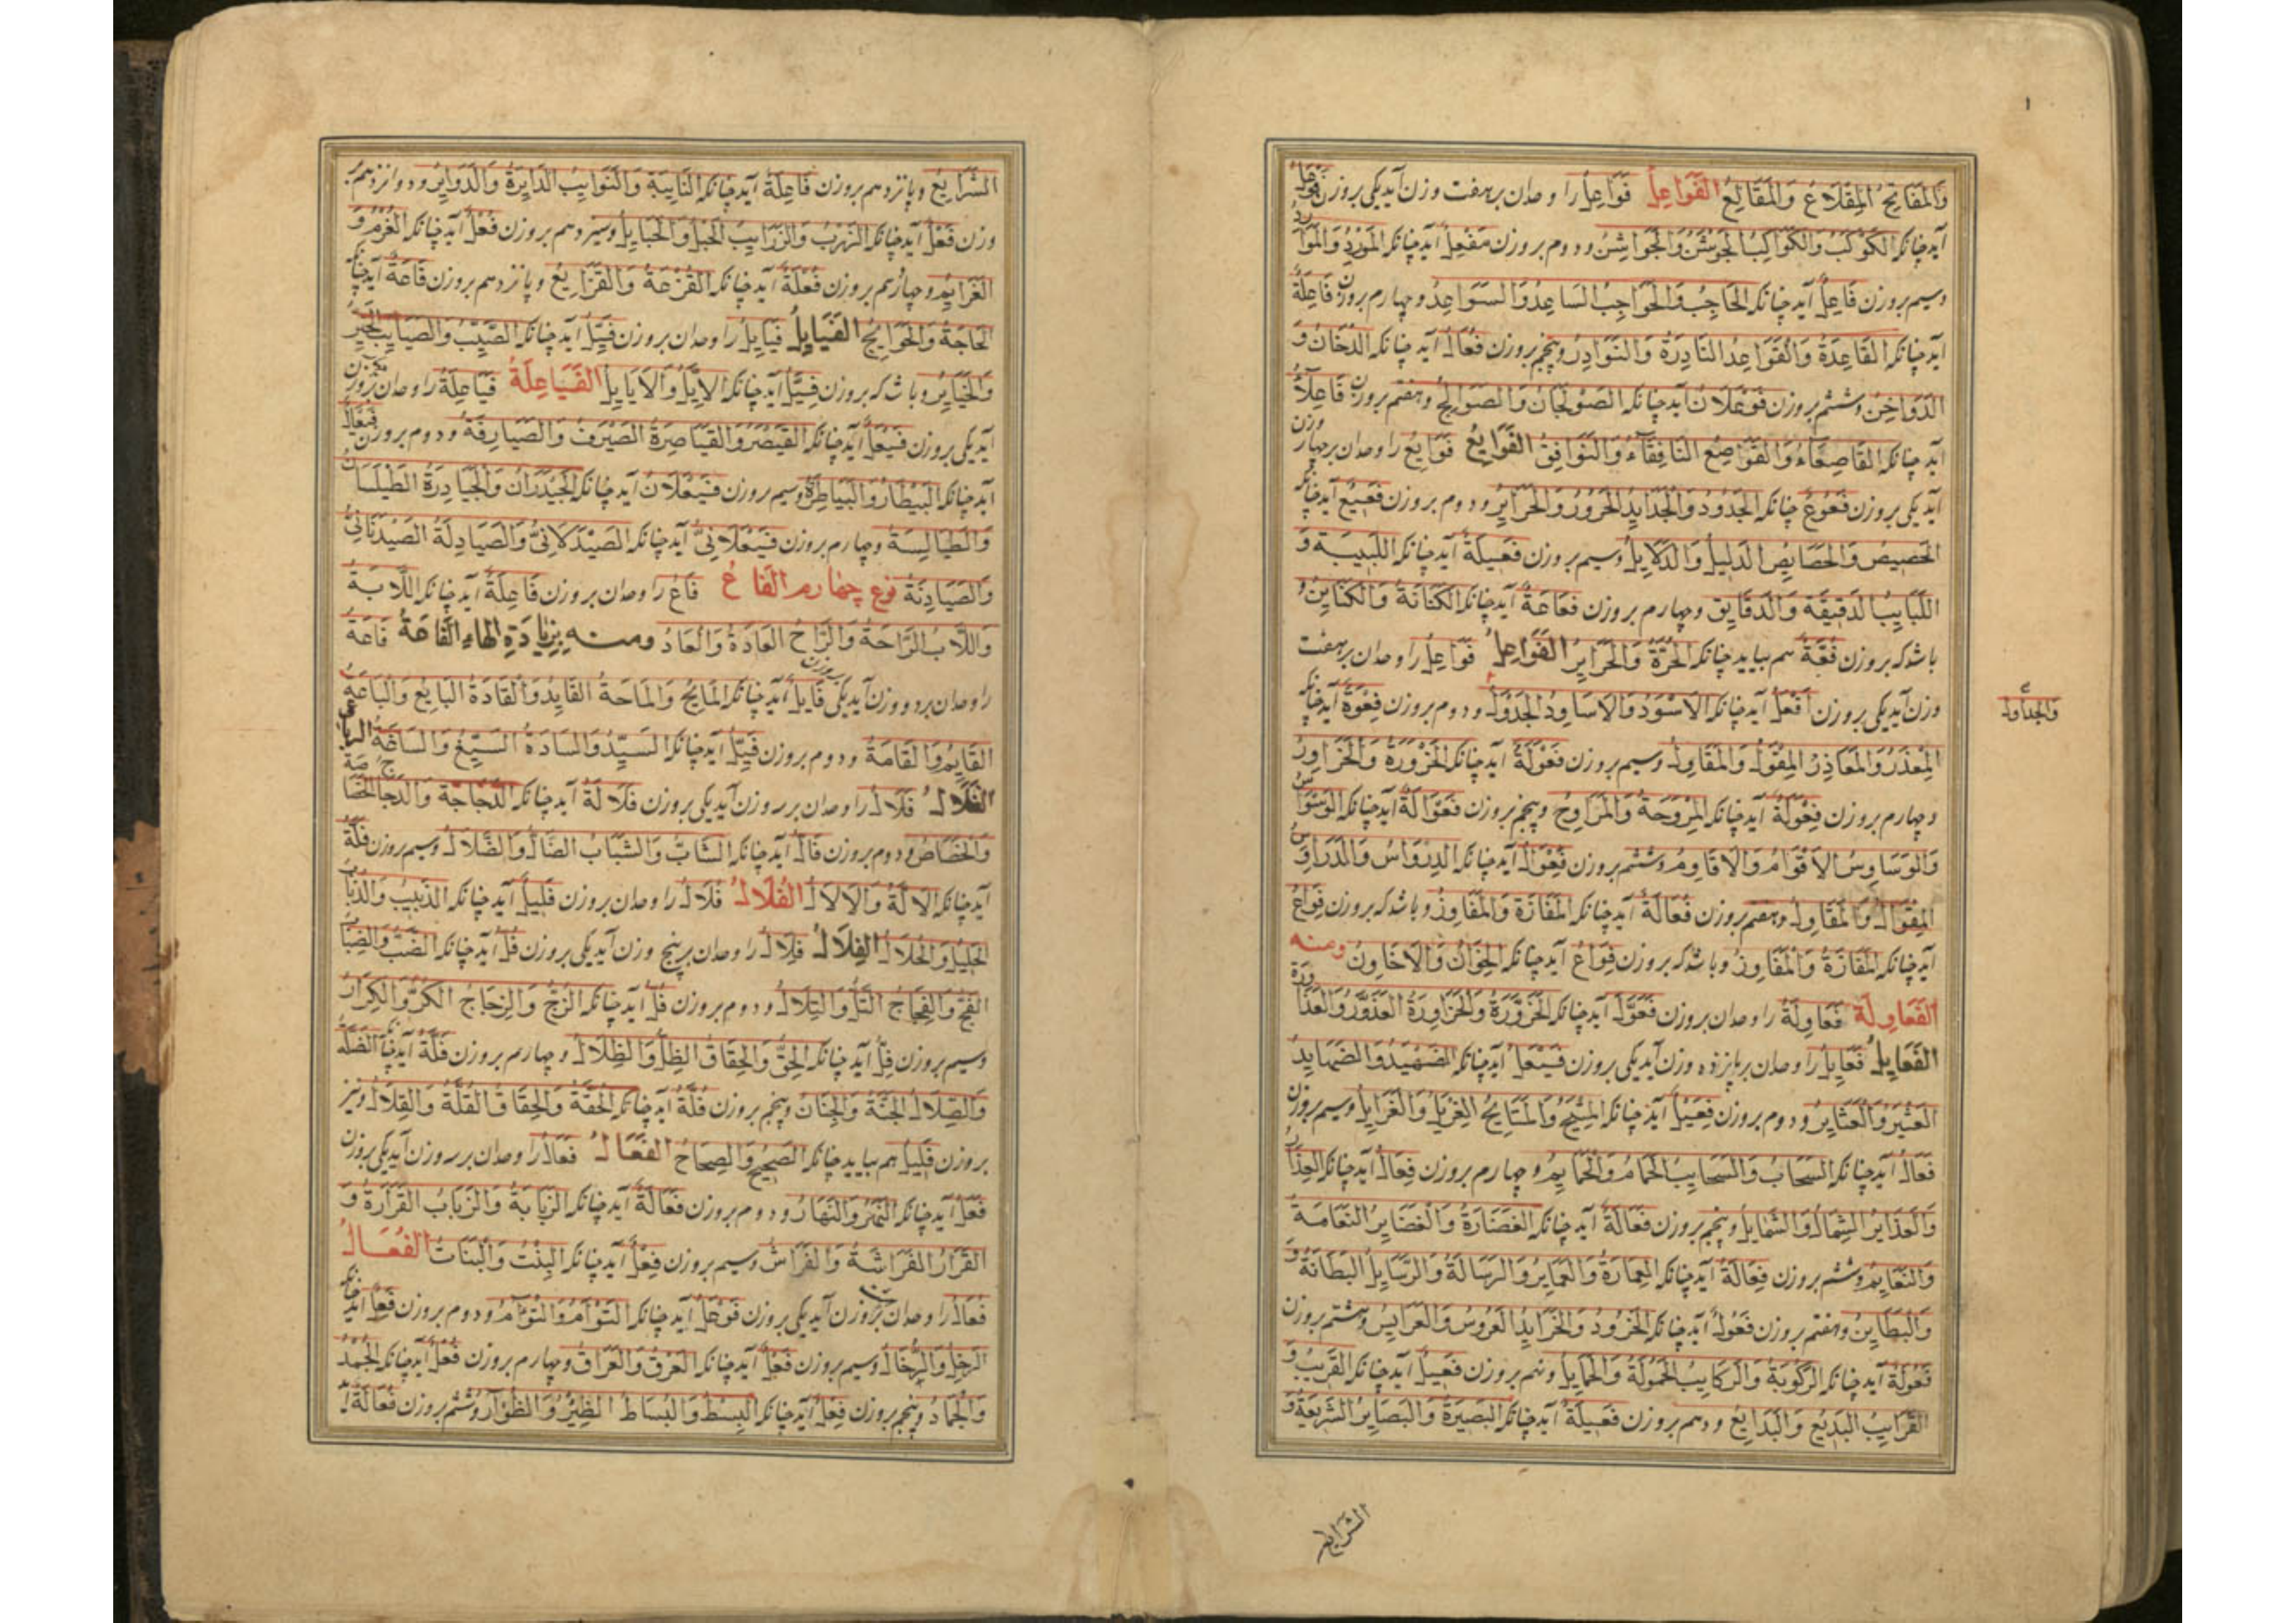 وَالْمَفَاتِحُ الْمِقْلَاعُ وَالْمَقَالِعُ الفَوَاعِلُ فَوَاعِلُ را وحدان برهفت وزن آید یکی بروزن فَوْعَلٌ
آید چنانکه الكَوْكَبُ وَالْكَوَاكِبُ الجَوْشَنُ وَالْجَوَاشِنُ ودوم بروزن مَفْعِلٌ آید چنانکه المَوْرِدُ وَالْمَوَارِدُ
وسیم بروزن فَاعِلٌ آید چنانکه الحَاجِبُ وَالْحَوَاجِبُ السَاعِدُ وَالسَّوَاعِدُ وچهارم بروزن فَاعِلَةٌ
آید چنانکه القَاعِدَةُ وَالْقَوَاعِدُ النَادِرَةُ وَالنَوَادِرُ وپنجم بروزن فُعَالٌ آید چنانکه الدُخَانُ وَ
الدَوَاخِنُ وششم بروزن فَوْعَلَانٌ آید چنانکه الصَوْلَجَانُ وَالصَوَالِجُ وهفتم بروزن فَاعِلَآءُ
آید چنانکه القَاصِعَاءُ وَالْقَوَاصِعُ النَافِقَآءُ وَالنَوَافِقُ الفَوَايِعُ فَوَايِعُ را وحدان برچهار وزن
آید یکی بروزن فَعُوعٌ چنانکه الجَدُودُ وَالْجَدَايِدُ الحَرُورُ وَالْحَرَايِرُ ودوم بروزن فَعِيعٌ آید چنانکه
الخَصِيصُ وَالْخَصَايِصُ الدَلِيلُ وَالدَلَايِلُ وسیم بروزن فَعِيلَةٌ آید چنانکه اللَبِيبَة وَ
اللَبَايِبُ الدَقِيقَة وَالدَقَايِق وچهارم بروزن فَعَاعَةٌ آید چنانکه الكَنَانَةُ وَالْكَنَايِنُ و
باشد که بروزن فُعَّةٌ هم بیاید چنانکه الحُرَّةُ وَالْحَرَايِرُ الفَوَاعِلُ فَوَاعِلُ را وحدان برهفت
وزن آید یکی بروزن أَفْعَلٌ آید چنانکه الاَسْوَدُ وَالْاَسَاوِدُ الجَدْوَلُ ودوم بروزن فِعْوَةٌ آید چنانکه
وَالجَدَاوِلُ
المِعْذَرُ وَالْمَعَاذِرُ المِقْوَلُ وَالْمَقَاوِلُ وسیم بروزن فَعْوَلَةٌ آید چنانکه الحَزْوَرَةُ وَالْحَزَاوِرُ
وچهارم بروزن فِعْوَلَةٌ آید چنانکه المِرْوَحَةُ وَالْمَرَاوِحُ وپنجم بروزن فَعْوَالَةٌ آید چنانکه الوَسْوَاسُ
وَالْوَسَاوِسُ الاَقْوَامُ وَالْاَقَاوِمُ وششم بروزن فِعْوَالٌ آید چنانکه الدِرْوَاسُ وَالْدَرَاوِسُ
المِقْوَالُ وَالْمَقَاوِلُ وهفتم بروزن فَعَالَةٌ آید چنانکه المَفَازَةُ وَالْمَفَاوِزُ وباشد که بروزن فِوَاعٌ
آید چنانکه المَفَازَةُ وَالْمَفَاوِزُ وباشد که بروزن فِوَاعٌ آید چنانکه الخِوَانُ وَالْاَخَاوِنُ ومنه
الفَعَاوِلَة فَعَاوِلَةُ را وحدان بروزن فَعَوَّلٌ آید چنانکه الحَزَوَّرَةُ وَالْحَزَاوِرَةُ العَذَوَّرُ وَالْعَذَاوِرَةُ
الفَعَايِلُ فَعَايِلُ را وحدان برپانزده وزن آید یکی بروزن فَيْعَلٌ آید چنانکه الضَهْيَدُ وَالضَهَايِدُ
العَثْيَرُ وَالْعَثَايِرُ ودوم بروزن فِعْيَلٌ آید چنانکه المِتْيَحُ وَالْمَتَايِحُ الغِرْيَلُ وَالْغَرَايِلُ وسیم بروزن
فَعَالٌ آید چنانکه السَحَابُ وَالسَحَايِبُ الحَمَامُ وَالْحَمَايِمُ وچهارم بروزن فِعَالٌ آید چنانکه العِذَارُ
وَالْعَذَايِرُ الشِمَالُ وَالشَمَايِلُ وپنجم بروزن فَعَالَةٌ آید چنانکه الغَضَارَةُ وَالْغَضَايِرُ النَعَامَةُ
وَالنَعَايِمُ وششم بروزن فِعَالَةٌ آید چنانکه العِمَارَةُ وَالْعَمَايِرُ وَالرِسَالَةُ وَالرَسَايِلُ البَطَانَةُ
وَالْبَطَايِنُ وهفتم بروزن فَعُولٌ آید چنانکه الخَرُودُ وَالْخَرَايِدُ العَرُوسُ وَالْعَرَايِسُ وهشتم بروزن
فَعُولَةٌ آید چنانکه الرَكُوبَةُ وَالرَكَايِبُ الحَمُولَةُ وَالْحَمَايِلُ ونهم بروزن فَعِيلٌ آید چنانکه القَرِيبُ وَ
القَرَايِبُ البَدِيعُ وَالْبَدَايِعُ ودهم بروزن فَعِيلَةٌ آید چنانکه البَصِيرَةُ وَالْبَصَايِرُ الشَرِيعَةُ وَ
الشَرَايِع
الشَّرَايِعُ ویازدهم بروزن فَاعِلَةٌ آید چنانکه النَايِبَةِ وَالْنَوَايِبُ الدَايِرَةُ وَالْدَوَايِرُ ودوازدهم بر
وزن فَعْلٌ آید چنانکه الزَرْبُ وَالزَرَايِبُ الحَبْلُ وَالْحَبَايِلُ وسیزدهم بروزن فُعْلٌ آید چنانکه الغُرْمُ وَ
الغَرَايِمُ وچهاردهم بروزن فُعْلَةٌ آید چنانکه القُزْعَةُ وَالْقَزَايِعُ وپانزدهم بروزن فَاعَةٌ آید چنانکه
الحَاجَةُ وَالْحَوَايِجُ الفَيَايِلُ فَيَايِلُ را وحدان بروزن فَيِّلٌ آید چنانکه الصَيِّبُ وَالصَيَايِبُ الخَيِّرُ
وَالْخَيَايِرُ وباشد که بروزن فِيَّلٌ آید چنانکه الاِيَّلُ وَالْاَيَايِلُ الفَيَاعِلَةُ فَيَاعِلَةُ را وحدان بر
آید یکی بروزن فَيْعَلٌ آید چنانکه القَيْصَرُ وَالْقَيَاصِرَةُ الصَيْرَفُ وَالصَيَارِفَةُ ودوم بروزن فَيْعَالٌ
آید چنانکه البَيْطَارُ وَالْبَيَاطِرَةُ وسیم بروزن فَيْعَلَانٌ آید چنانکه الجَيْدَرَانُ وَالْجَيَادِرَةُ الطَيْلَسَانُ
وَالطَيَالِسَةُ وچهارم بروزن فَيْعَلَانِيٌّ آید چنانکه الصَيْدَلَانِيُّ وَالصَيَادِلَةُ الصَيْدَنَانِيُّ
وَالصَيَادِنَةُ نوع چهارم الفَاعُ فَاعُ را وحدان بروزن فَاعِلَةٌ آید چنانکه اللَّابَةُ
وَاللَّابُ الرَّاحَةُ وَالرَّاحُ العَادَةُ وَالْعَادُ ومنه بِزِيَادَةِ الهَاءِ الفَاعَةُ فَاعَةُ
را وحدان بردو وزن آید یکی بروزن فَايِلٌ آید چنانکه المَايِحُ وَالْمَاحَةُ القَايِدُ وَالْقَادَةُ البَايِعُ وَالْبَاعَةُ
القَايِمُ وَالْقَامَةُ ودوم بروزن فَيِّلٌ آید چنانکه السَيِّدُ وَالسَادَةُ السَيِّغُ وَالسَاغَةُ
الفَلَالُ فَلَالُ را وحدان برسه وزن آید یکی بروزن فَلَالَةٌ آید چنانکه الدَّجَاجَةُ وَالدَجَاجُ الخَصَاصَةُ
وَالْخَصَاصُ ودوم بروزن فَالٌّ آید چنانکه الشَابُّ وَالشَبَابُ الضَالُّ وَالضَلَالُ وسیم بروزن فَلَّةٌ
آید چنانکه الاَلَةُ وَالْاَلَالُ الفُلَالُ فُلَالُ را وحدان بروزن فَلِيلٌ آید چنانکه الذَبِيبُ وَالذُبَابُ
الجَلِيلُ وَالْجُلَالُ الفِلَالُ فِلَالُ را وحدان برپنج وزن آید یکی بروزن فَلٌّ آید چنانکه الضَبُّ وَالضِبَابُ
الفَجُّ وَالْفِجَاجُ التَلُّ وَالتِلَالُ ودوم بروزن فُلٌّ آید چنانکه الزُجُّ وَالزِجَاجُ الكُرُّ وَالْكِرَارُ
وسیم بروزن فِلٌّ آید چنانکه الحِقُّ وَالْحِقَاقُ الظِلُّ وَالظِلَالُ وچهارم بروزن فَلَّةٌ آید چنانکه الصَلَّةُ
وَالصِلَالُ الجَنَّةُ وَالْجِنَانُ وپنجم بروزن فُلَّةٌ آید چنانکه الحُقَّةُ وَالْحِقَاقُ القُلَّةُ وَالْقِلَالُ ونیز
بروزن فَلِيلٌ هم بیاید چنانکه الصَحِيحُ وَالصِحَاحُ الفَعَالُ فَعَالُ را وحدان برسه وزن آید یکی بروزن
فَعَلٌ آید چنانکه وَ ودوم بروزن فَعَالَةٌ آید چنانکه الرَبَابَةُ وَالرَبَابُ القَرَارَةُ وَ
القَرَارُ الفَرَاشَةُ وَالْفَرَاشُ وسیم بروزن فِعْلٌ آید چنانکه البِنْتُ وَالْبَنَاتُ الفُعَالُ
فُعَالُ را وحدان بر وزن آید یکی بروزن فَوْعَلٌ آید چنانکه التَوْاَمُ وَالتُؤَامُ ودوم بروزن فَعِلٌ آید چنانکه
الرَخِلُ وَالرُخَالُ وسیم بروزن فَعْلٌ آید چنانکه العَرْقُ وَالْعُرَاقُ وچهارم بروزن فُعْلٌ آید چنانکه الجُمْدُ
وَالْجُمَادُ وپنجم بروزن فِعْلٌ آید چنانکه البِسْطُ وَالْبُسَاطُ الظِئْرُ وَالظُؤَارُ وششم بروزن فُعَالَةٌ